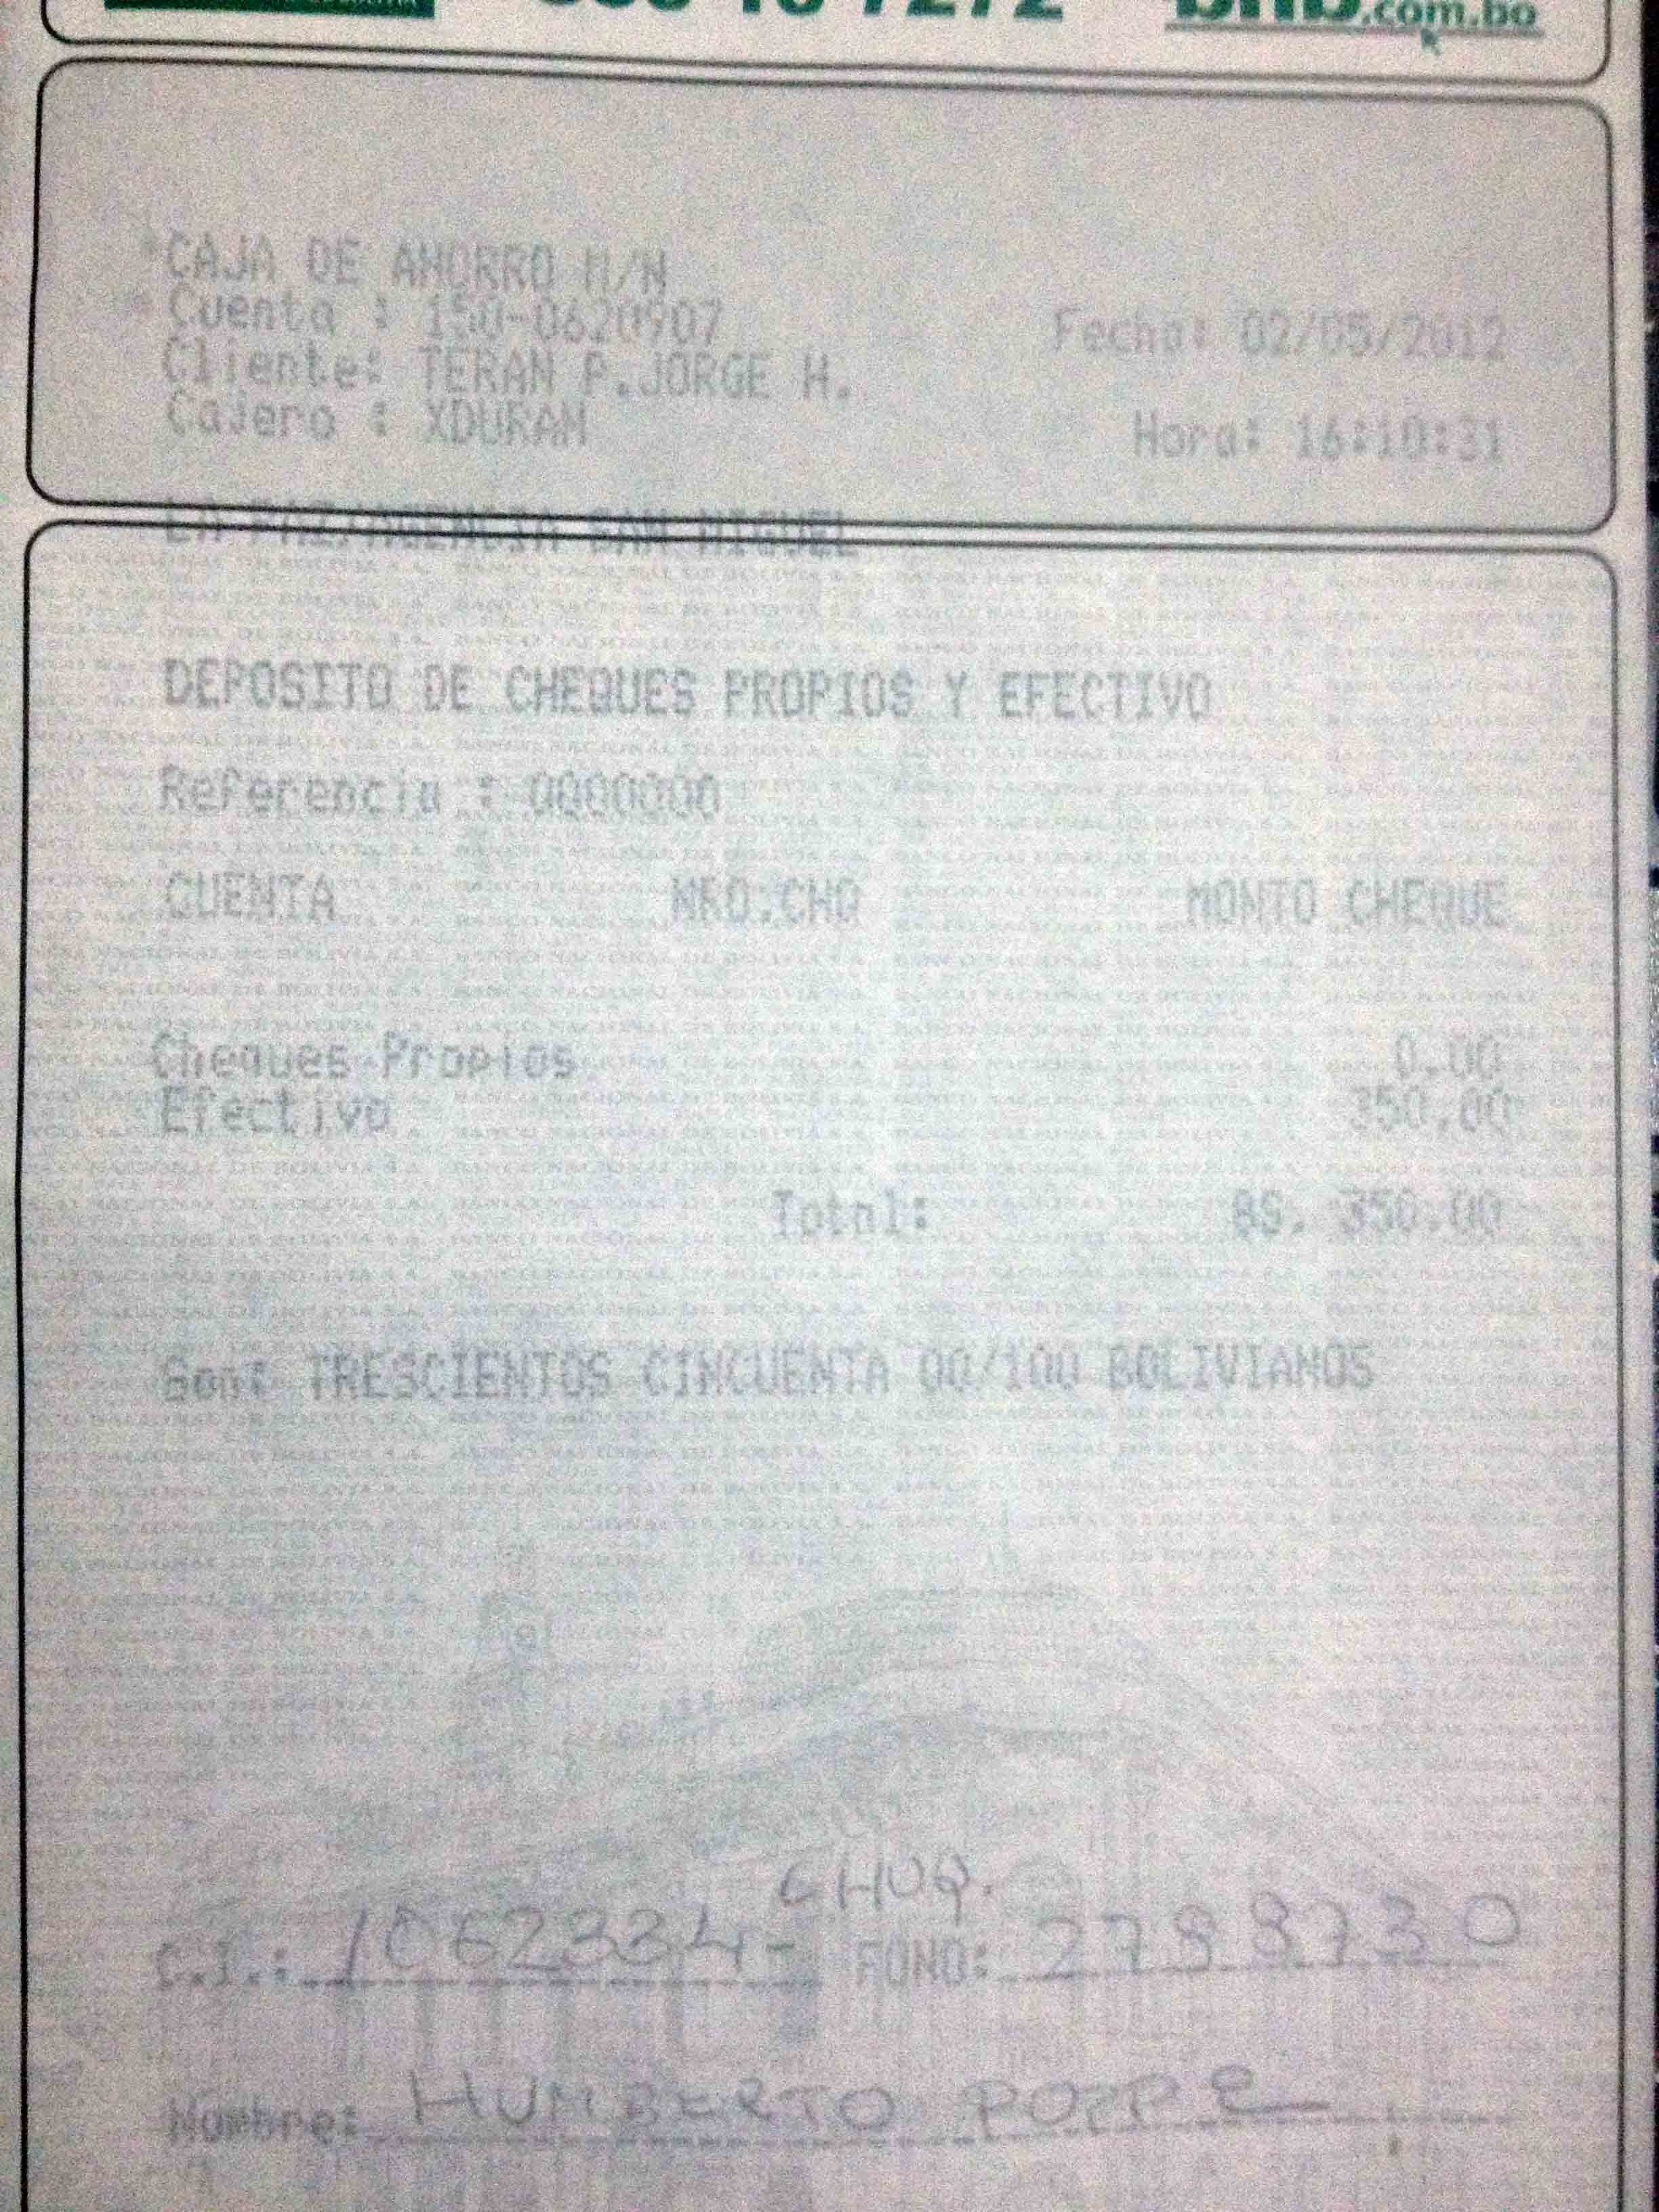 bnb.com.bo
CAJA DE AHORRO M/N
Cuenta : 150-0620907
Fecha: 02/05/2012
Cliente: TERAN P.JORGE H.
Cajero : XDURAN
Hora: 16:10:31
LA PAZ/AGENCIA SAN MIGUEL
DEPOSITO DE CHEQUES PROPIOS Y EFECTIVO
Referencia : 0000000
CUENTA NRO.CHQ MONTO CHEQUE
Cheques Propios 0.00
Efectivo 350.00
Total: BS. 350.00
Son: TRESCIENTOS CINCUENTA 00/100 BOLIVIANOS
CHUQ.
C.I.: 1062334- FONO: 2798730
Nombre: HUMBERTO POPPE